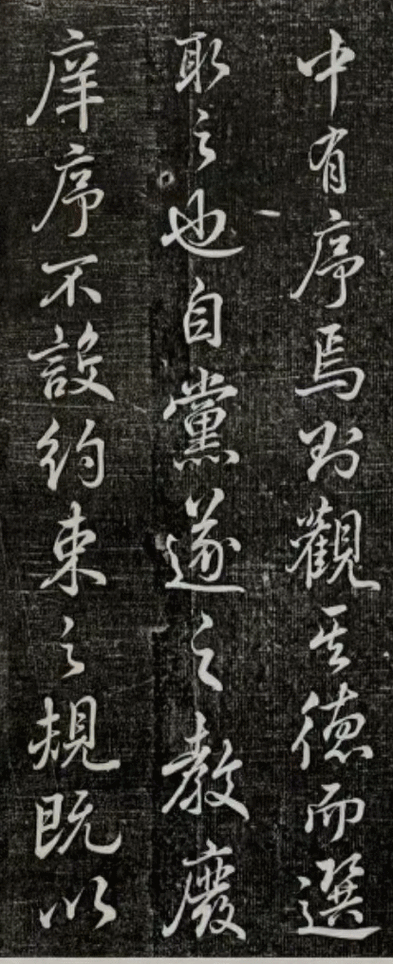 中有序焉所觀其德而選
取之也自黨遂之教廢
庠序不設約束之規既以